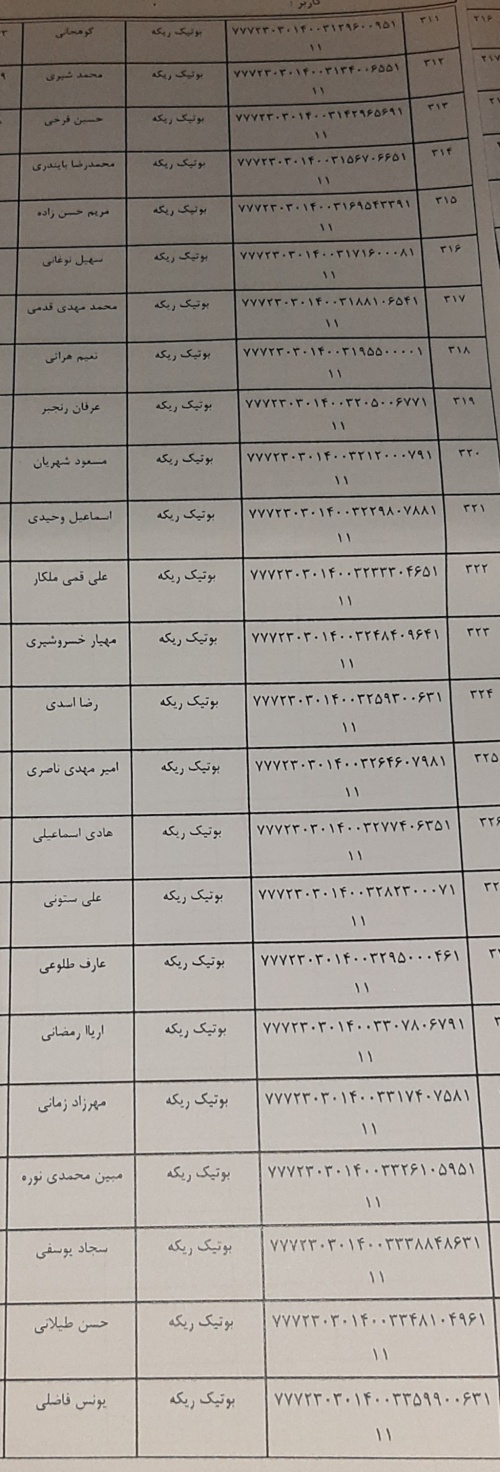 کاربر :
۳۱۱ ۷۷۷۲۳۰۳۰۱۴۰۰۳۱۲۹۶۰۰۹۵۱ بوتیک ریکه کوهجانی
۱۱
۳۱۲ ۷۷۷۲۳۰۳۰۱۴۰۰۳۱۳۴۰۰۶۵۵۱ بوتیک ریکه محمد شیری
۱۱
۳۱۳ ۷۷۷۲۳۰۳۰۱۴۰۰۳۱۴۲۹۶۵۶۹۱ بوتیک ریکه حسین فرخی
۱۱
۳۱۴ ۷۷۷۲۳۰۳۰۱۴۰۰۳۱۵۶۷۰۶۶۵۱ بوتیک ریکه محمدرضا بایندری
۱۱
۳۱۵ ۷۷۷۲۳۰۳۰۱۴۰۰۳۱۶۹۵۴۳۳۹۱ بوتیک ریکه مریم حسن زاده
۱۱
۳۱۶ ۷۷۷۲۳۰۳۰۱۴۰۰۳۱۷۱۶۰۰۰۸۱ بوتیک ریکه سهیل نوغانی
۱۱
۳۱۷ ۷۷۷۲۳۰۳۰۱۴۰۰۳۱۸۸۱۰۶۵۴۱ بوتیک ریکه محمد مهدی قدمی
۱۱
۳۱۸ ۷۷۷۲۳۰۳۰۱۴۰۰۳۱۹۵۵۰۰۰۰۱ بوتیک ریکه نعیم هراتی
۱۱
۳۱۹ ۷۷۷۲۳۰۳۰۱۴۰۰۳۲۰۵۰۰۶۷۷۱ بوتیک ریکه عرفان رنجبر
۱۱
۳۲۰ ۷۷۷۲۳۰۳۰۱۴۰۰۳۲۱۲۰۰۰۷۹۱ بوتیک ریکه مسعود شهریان
۱۱
۳۲۱ ۷۷۷۲۳۰۳۰۱۴۰۰۳۲۲۹۸۰۷۸۸۱ بوتیک ریکه اسماعیل وحیدی
۱۱
۳۲۲ ۷۷۷۲۳۰۳۰۱۴۰۰۳۲۳۳۳۰۴۶۵۱ بوتیک ریکه علی قمی ملکار
۱۱
۳۲۳ ۷۷۷۲۳۰۳۰۱۴۰۰۳۲۴۸۴۰۹۶۴۱ بوتیک ریکه مهیار خسروشیری
۱۱
۳۲۴ ۷۷۷۲۳۰۳۰۱۴۰۰۳۲۵۹۳۰۰۶۳۱ بوتیک ریکه رضا اسدی
۱۱
۳۲۵ ۷۷۷۲۳۰۳۰۱۴۰۰۳۲۶۴۶۰۷۹۸۱ بوتیک ریکه امیر مهدی ناصری
۱۱
۳۲۶ ۷۷۷۲۳۰۳۰۱۴۰۰۳۲۷۷۴۰۶۳۵۱ بوتیک ریکه هادی اسماعیلی
۱۱
۳۲ ۷۷۷۲۳۰۳۰۱۴۰۰۳۲۸۲۳۰۰۰۷۱ بوتیک ریکه علی ستونی
۱۱
۷۷۷۲۳۰۳۰۱۴۰۰۳۲۹۵۰۰۰۴۶۱ بوتیک ریکه عارف طلوعی
۱۱
۷۷۷۲۳۰۳۰۱۴۰۰۳۳۰۷۸۰۶۷۹۱ بوتیک ریکه اریاا رمضانی
۱۱
۷۷۷۲۳۰۳۰۱۴۰۰۳۳۱۷۴۰۷۵۸۱ بوتیک ریکه مهرزاد زمانی
۱۱
۷۷۷۲۳۰۳۰۱۴۰۰۳۳۲۶۱۰۵۹۵۱ بوتیک ریکه مبین محمدی نوره
۱۱
۷۷۷۲۳۰۳۰۱۴۰۰۳۳۳۸۸۴۸۶۳۱ بوتیک ریکه سجاد یوسفی
۱۱
۷۷۷۲۳۰۳۰۱۴۰۰۳۳۴۸۱۰۴۹۶۱ بوتیک ریکه حسن طیلانی
۱۱
۷۷۷۲۳۰۳۰۱۴۰۰۳۳۵۹۹۰۰۶۳۱ بوتیک ریکه یونس فاضلی
۱۱